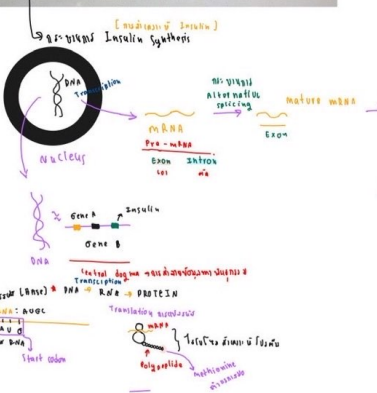 [การสังเคราะห์ Insulin]
กระบวนการ Insulin Synthesis
DNA
Transcription
nucleus
mRNA
Pre-mRNA
Exon Intron
กระบวนการ
Alternative
splicing
mature mRNA
Exon
DNA
Gene A
Insulin
Gene B
Central dogma
Transcription
DNA → RNA → PROTEIN
Translation
: AUGC
A U G
RNA
Start codon
mRNA
Polypeptide
methionine